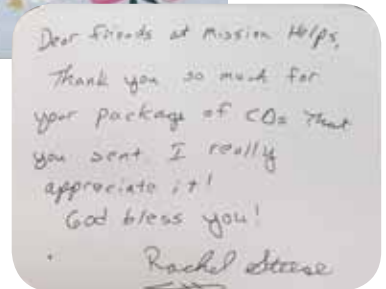 Dear friends at Mission Helps,
Thank you so much for
your package of CDs that
you sent I really
appreciate it!
God bless you!
Rachel